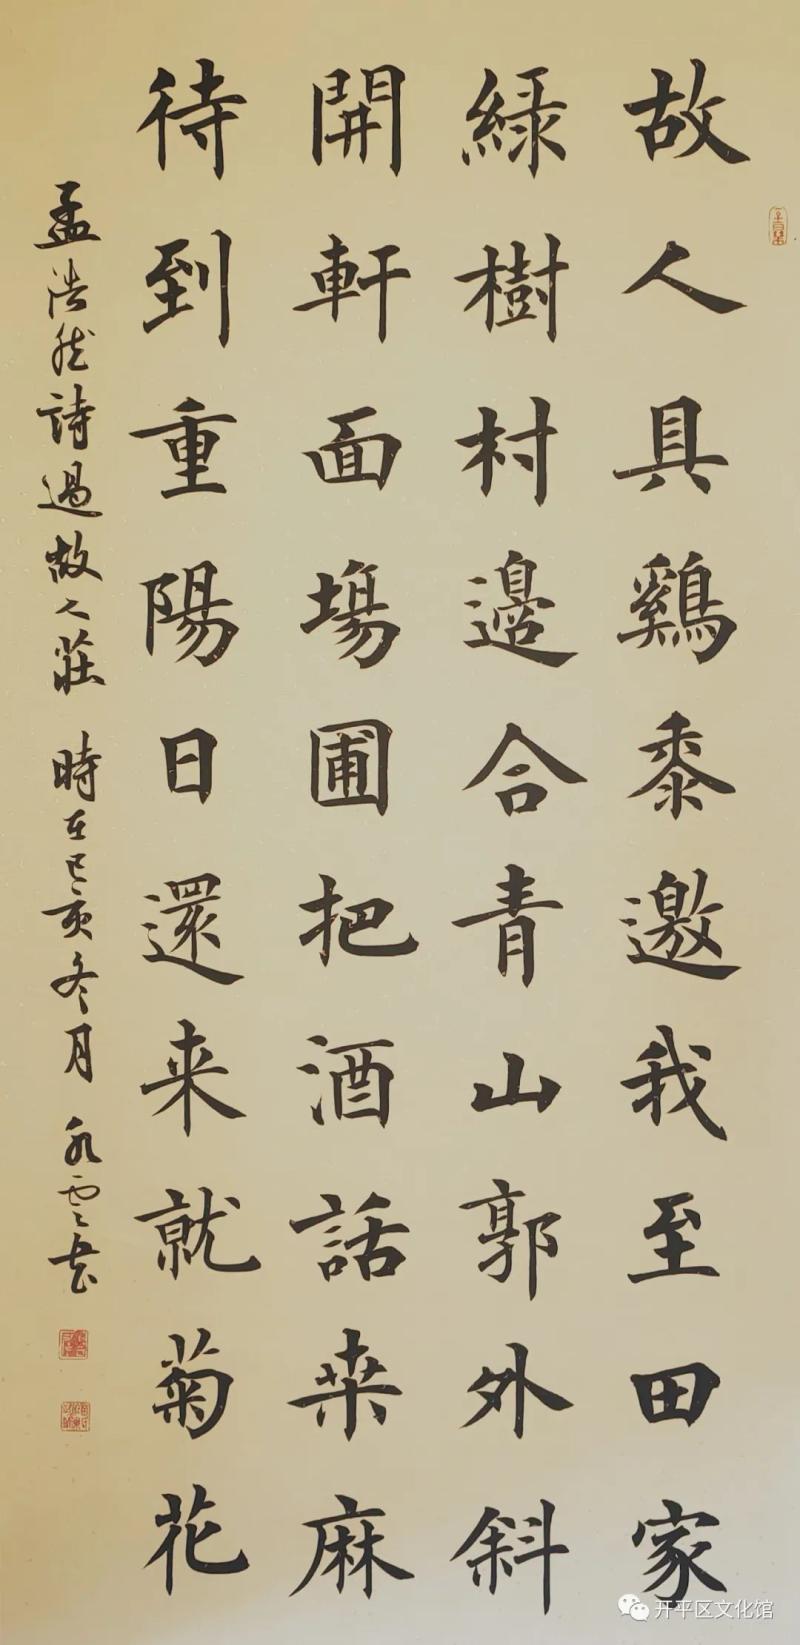 故人具鷄黍邀我至田家
綠樹村邊合青山郭外斜
開軒面場圃把酒話桒麻
待到重陽日還来就菊花
孟浩然詩過故人莊 時在己亥冬月 永雲书
开平区文化馆